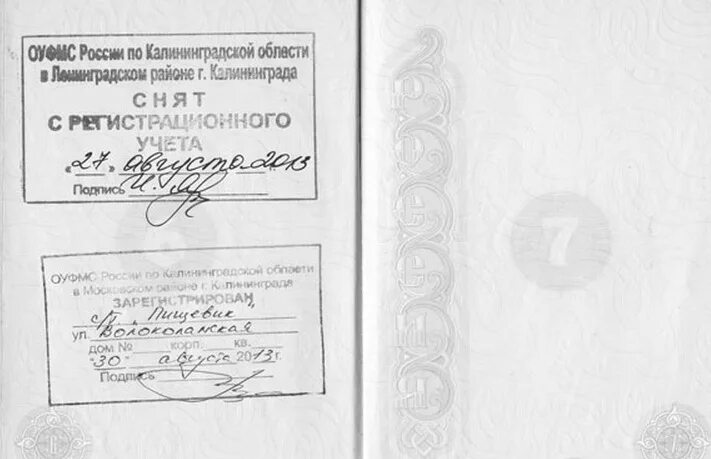 ОУФМС России по Калининградской области
в Ленинградском районе г. Калининграда
СНЯТ
С РЕГИСТРАЦИОННОГО
УЧЕТА
«27» августа 2013
Подпись
ОУФМС России по Калининградской области
в Московском районе г. Калининграда
ЗАРЕГИСТРИРОВАН
с/т „Пищевик"
ул. Волоколамская
дом № корп. кв.
"30" августа 2013 г.
Подпись
6
7
7